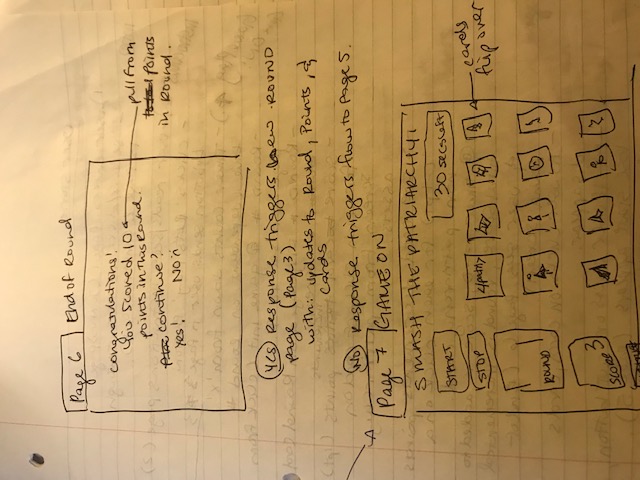 Page 6 End of Round
Congratulations!
You scored 10
points in this Round.
continue?
Yes! No
pull from
points
in Round.
YES Response triggers new ROUND
page (Page 3)
with: updates to Round, Points, &
cards
NO Response triggers flow to Page 5.
Page 7 GAME ON
SMASH THE PATRIARCHY!
START 30 secs left
STOP
cards
flip over
ROUND 1
SCORE 3